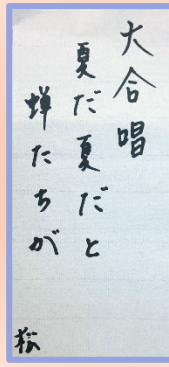 大合唱
夏だ夏だと
蝉たちが
松